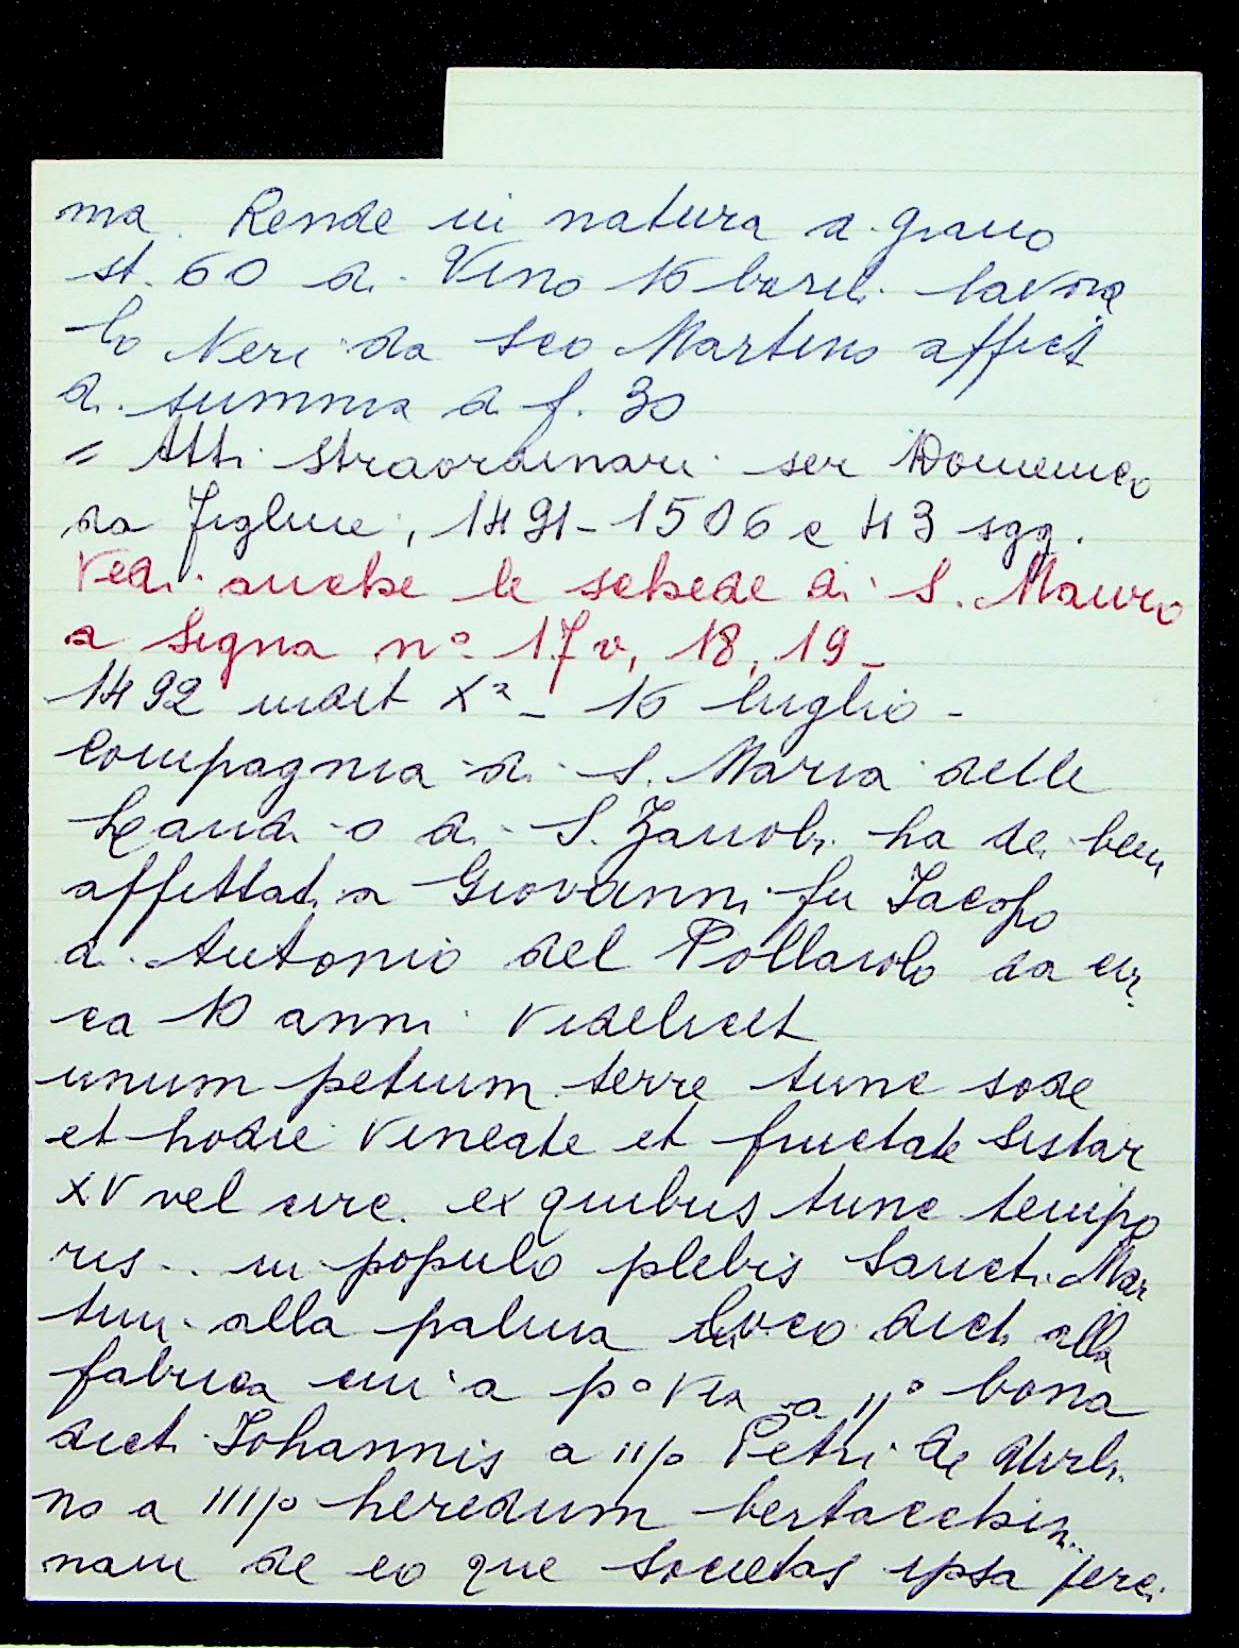 ma. Rende in natura d. grano
st. 60 di Vino 16 barili lavora
lo Neri da Sco Martino affict
di summa di f. 30
= Atti straordinari ser Domenico
da Figline, 1491-1506 c 43 sgg.
Vedi anche le schede di S. Mauro
a Signa n° 17v, 18, 19-
1492 indict Xª - 16 luglio -
Compagnia di S. Maria delle
Laudi o di S. Zanobi ha dei beni
affittati a Giovanni fu Iacopo
di Antonio del Pollaiolo da cir
ca 10 anni videlicet
unum petium terre tunc sode
et hodie vineate et fructate sistar
XV vel circ. ex quibus tunc tempo
ris.. in populo plebis Sancti Mar
tini alla palma loco dicti alla
fabrica cui a p° via a II° bona
dicti Iohannis a III° Petri de
no a IIII° heredum bertacchin..
nam de eo que societas ipsa